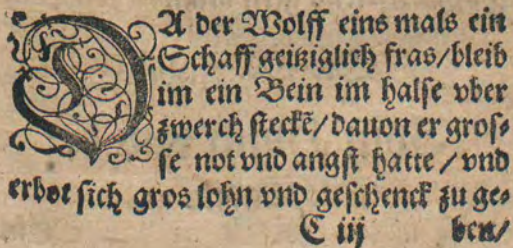 DA der Wolff eins mals ein
Schaff geitziglich fras/bleib
im ein Bein im halse vber
zwerch steckẽ/dauon er gros⸗
se not vnd angst hatte/vnd
erbot sich gros lohn vnd geschenck zu ge⸗
C iij ben/